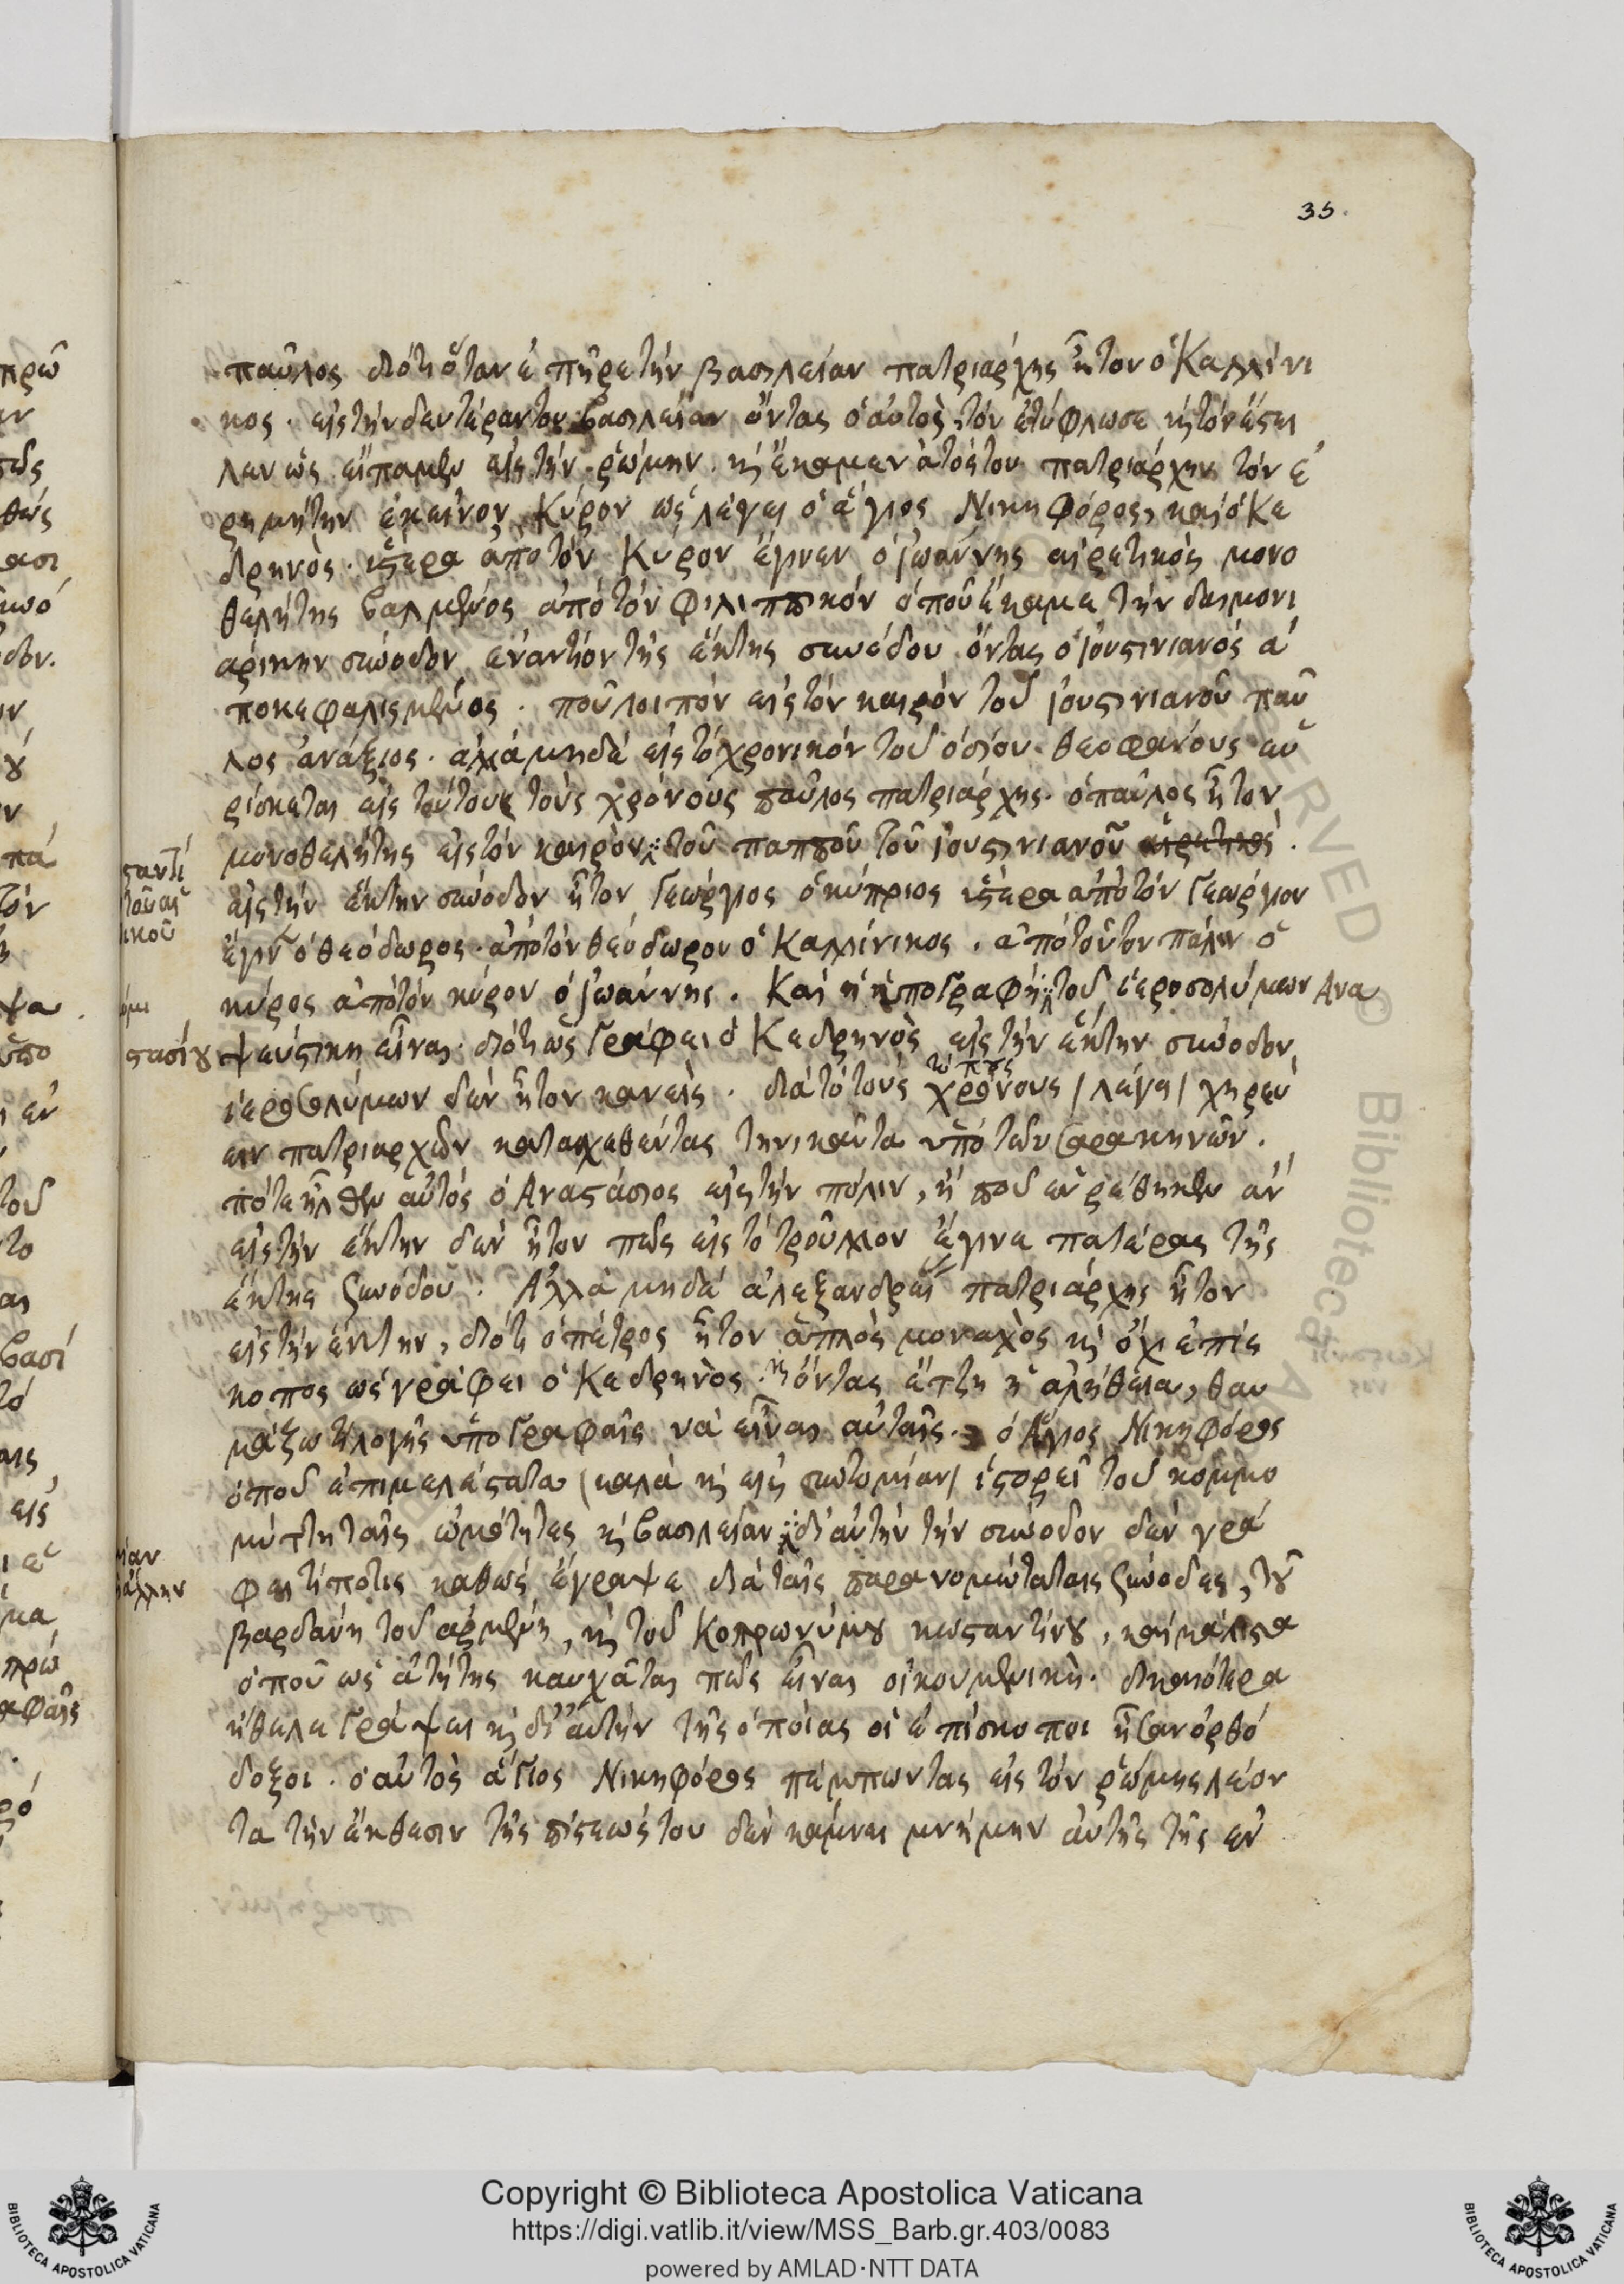 35.
παῦλος διότι ὅταν ἐπῆρε τήν βασιλείαν πατριάρχης ἦτον ὁ Καλλίνι
κος. εἰς τήν δευτέραν του βασιλείαν ὄντας ὁ αὐτὸς, τόν ἐτύφλωσε κὶ τόν ἔςει
λεν ὡς εἴπαμεν εἰς τήν ῥώμην. κὶ ἔκαμεν ἀτός του πατριάρχην τόν ἐ
ρημίτην ἐκεῖνον Κύρον ὡς λέγει ὁ ἅγιος Νικηφόρος, καὶ ὁ Κε
δρηνὸς. ὕςερα ἀπὸ τόν Κύρον ἔγινεν ὁ ἰωάννης αἱρετικὸς μονο
θελήτης βαλμένος ἀπό τόν Φιλιππικόν ὁποῦ ἔκαμε τήν δαιμονι
αρικην σύνοδον ἐναντίον τῆς ἕκτης συνόδου ὄντας ὁ ἰουςινιανός ἀ
ποκεφαλισμένος. ποῦ λοιπόν εἰς τόν καιρόν τοῦ ἰουςινιανοῦ παῦ
λος ἀνάξιος. ἀλλά μηδέ εἰς τό χρονικόν τοῦ ὁσίου θεοφάνους εὑ
ρίσκεται εἰς τούτους τούς χρόνους παῦλος πατριάρχης. ὁ παῦλος ἦτον
μονοθελήτης εἰς τόν καιρόν τοῦ παπποῦ τοῦ ἰουςινιανοῦ αἱρετικός.
εἰς τήν ἕκτην σύνοδον ἦτον Γεώργιος ὁ κύπριος ὕςερα ἀπὸ τόν Γεώργιον
ἔγιν ὁ θεόδωρος. ἀπό τόν θεόδωρον ὁ Καλλίνικος. ἀπό τοῦτον πάλιν ὁ
κύρος ἀπό τόν κύρον ὁ ἰωάννης. Καὶ ἡ ὑπογραφή τοῦ ἱεροσολύμων Ανα
ςασίου ψεύςικη εἶναι. διότι ὡς Γράφει ὁ Κεδρηνὸς εἰς τήν ἕκτην σύνοδον
ἱεροσολύμων δέν ἦτον κανείς. διά τό τούς χρόνους / λέγει / χηρεύ
ειν πατριαρχῶν κατασχεθέντας τηνικαῦτα ὑπό τῶν σαρακηνῶν.
πότε ἦλθεν αὐτός ὁ Αναςάσιος εἰς τήν πόλιν, ἤ ποῦ εὑρέθηκεν ἄν
εἰς τήν ἕκτην δέν ἦτον πῶς εἰς τό τροῦλλον ἔγινε πατέρας τῆς
ἕκτης συνόδου; Αλλά μηδέ ἀλεξανδρεί πατριάρχης ἦτον
εἰς τήν ἕκτην, διότι ὁ πέτρος ἦτον ἁπλὸς μοναχὸς κὶ ὄχι ἐπίς
κοπος ὡς γράφει ὁ Κεδρηνὸς. κὶ ὄντας ἔτζη ἡ ἀλήθεια, θαυ
μάζω τί λογῆς ὑπογραφαῖς νά εἶναι αὐταῖς. ὁ Ἅγιος Νικηφόρος
ὁποῦ ἐπιμελέςατα / καλά κὶ εἰς συντομίαν / ἱςορεῖ τοῦ κομμο
μύττη ταῖς ὠμότητες κὶ βασιλείαν δι' αὐτήν τήν σύνοδον δέν γρά
φει τίποτις καθώς ἔγραψε διά ταῖς παρανομώταταις συνόδες, τοῦ
βαρδάνη τοῦ ἀρμένη, κὶ τοῦ Κοπρωνύμου κωςαντίνου, καὶ μάλιςα
ὁποῦ ὡς ἀτή της καυχᾶται πῶς εἶναι οἰκουμενική. δικαιότερα
ἤθελε Γράψει κὶ δι' αὐτήν τῆς ὁποίας οἱ ἐπίσκοποι ἦσαν ὀρθό
δοξοι. ὁ αὐτὸς ἅγιος Νικηφόρος πέμπωντας εἰς τόν ῥώμης λέον
τα τήν ἔκθεσιν τῆς πίςεώς του δέν κάμνει μνήμην αὐτῆς τῆς ἐν
Copyright © Biblioteca Apostolica Vaticana
https://digi.vatlib.it/view/MSS_Barb.gr.403/0083
powered by AMLAD·NTT DATA